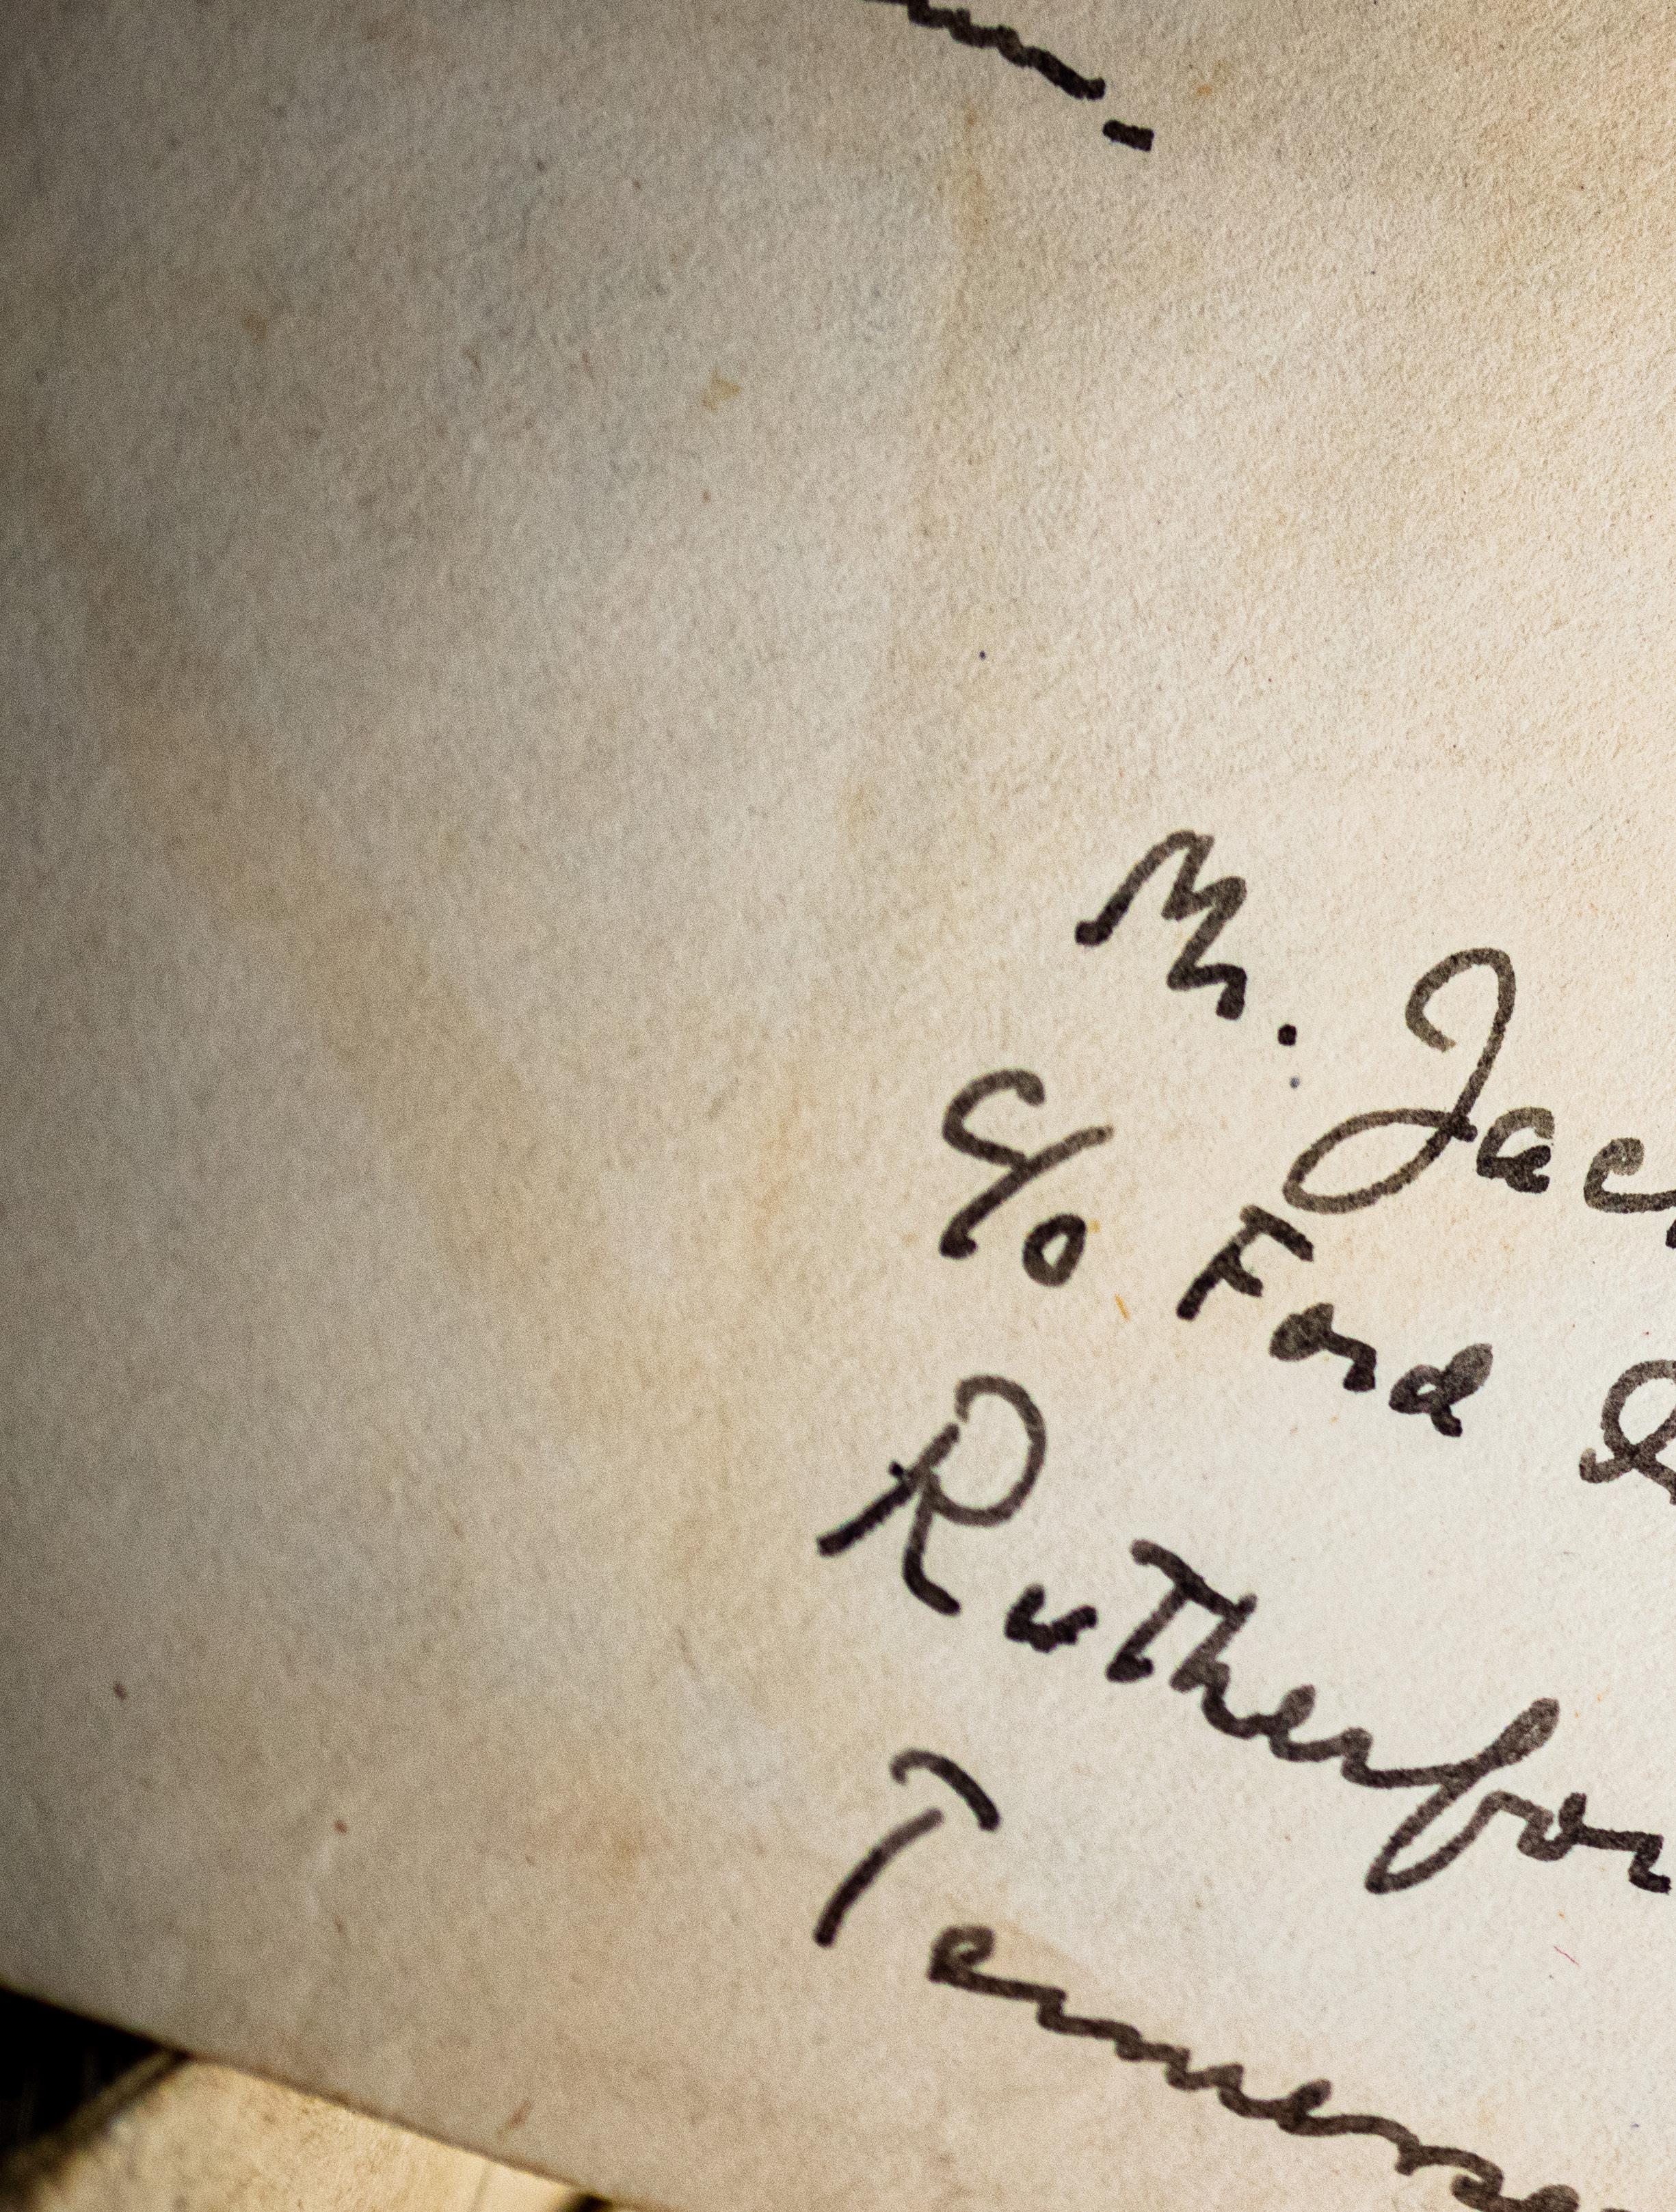 Mr. Jac
c/o Ford
Rutherfor
Tennesse